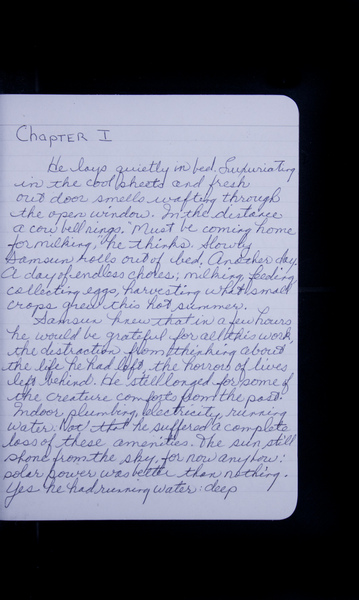 Chapter I
He lays quietly in bed. Luxuriating
in the cool sheets and fresh
out door smells wafting through
the open window. In the distance
a cow bell rings. "Must be coming home
for milking," he thinks. Slowly
Samsun rolls out of bed. Another day.
A day of endless chores; milking, feeding,
collecting eggs, harvesting what small
crops grew this hot summer.
Samsun knew that in a few hours
he would be grateful for all this work,
the distraction from thinking about
the life he had left, the horrors of lives
left behind. He still longed for some of
the creature comforts from the past:
Indoor plumbing, electricity, running
water. Not that he suffered a complete
loss of these amenities. The sun still
shone from the sky, for now anyhow;
solar power was better than nothing.
Yes he had running water: deep